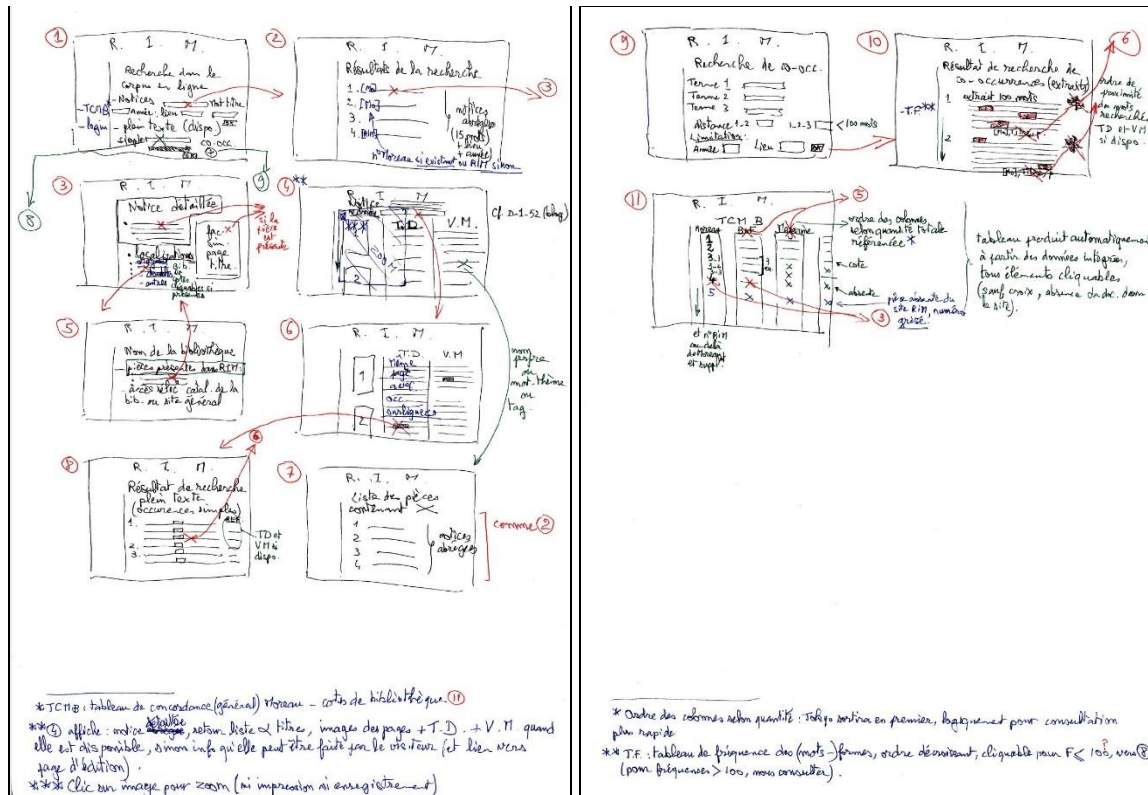 1
R. I. M.
Recherche dans le
corpus en ligne
-Notices
Mot titre
Année
lieu
-TCMB*
-login
- plein texte (dispo)
simples
co-occ.
8
9
2
R. I. M.
Résultats de la recherche
1. [Mo]
2. [Mo]
3.
4.
notices
abrégées
(15 mots
+ lieu
+ année
n° Moreau si existant ou RIM sinon
3
3
Notice détaillée
fac
sim
page
titre
Localisations
- autres
si la
pièce
est
présente
4
**
R. I. M.
Notice
***
T.D.
V.M.
ZOOM
1
2
Cf. D-1-52 (blog)
nom
propre
ou
mot-thème
ou
tag.
5
Nom de la bibliothèque
- pièces présentes dans RIM:
- accès vers catal. de la
bib. ou site général
6
R. I. M
T.D.
V.M.
1
2
même
page
avec
occ
surlignées
8
R. I. M.
Résultat de recherche
plein texte
(occurences simples)
1.
2.
3.
6
TD et
VM si
dispo.
7
R. I. M
Liste des pièces
contenant
1
2
3
4
notices
abrégées
comme 2
* TCMB : tableau de concordance (général) Moreau - cotes de bibliothèque 11
** 4 affiche : notice détaillée, retour liste α titres, images des pages + T.D. + V.M quand
elle est disponible, sinon info qu'elle peut être faite par le visiteur (et lien vers
page d'édition).
*** Clic sur image pour zoom (ni impression ni enregistrement)
9
R. I. M
Recherche de co-occ.
Terme 1
Terme 2
Terme 3
distance 1-2
1-2-3
< 100 mots
Limitation:
Année
Lieu
10
R. I. M.
Résultat de recherche de
co-occurrences (extraits)
1 extrait 100 mots
-T.F.**
2
6
ordre de
proximité
des mots
recherchés
TD et VM
si dispo.
11
R. I. M.
TCM B
Moreau
BnF
Mazarine
1
2
3
5
5
ordre des colonnes
selon quantité totale
référencée *
cote
absente
pièce absente du
site RIM, numéro
grisé.
3
et n° RIM
au-delà
de Moreau
et suppl.
tableau produit automatiquement
à partir des données intégrées,
tous éléments cliquables
(sauf croix, absence du doc. dans
le site).
* Ordre des colonnes selon quantité : Tokyo sortira en premier, logiquement pour consultation
plus rapide
** T.F. : tableau de fréquence des (mots-)formes, ordre décroissant, cliquable pour F ⩽ 100, vers 8
?
(pour fréquences > 100, nous consulter).